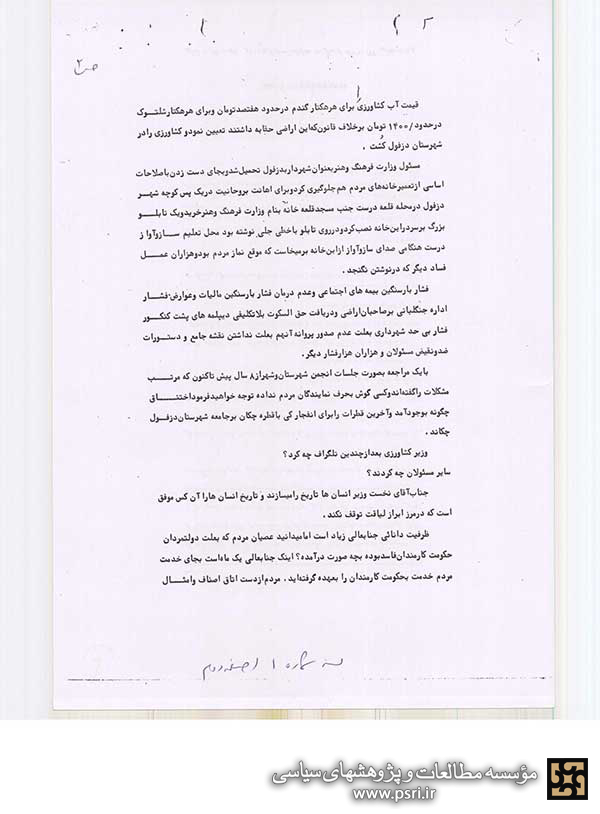 ص ۲
قیمت آب کشاورزی برای هرهکتار گندم درحدود هفتصدتومان وبرای هرهکتارشلتـوک
درحدود ۱۴۰۰/ تومان برخلاف قانون‌که‌این اراضی حقابه داشتند تعیین نمودو کشاورزی رادر
شهرستان دزفول کُشت .
مسئول وزارت فرهنگ وهنربعنوان‌شهرداربدزفول تحمیل‌شدوبجای دست زدن‌باصلاحات
اساسی ازتعمیرخانه‌های مردم هم‌جلوگیری کردوبرای اهانت بروحانیت دریک پس کوچه شهـر
دزفول درمحله قلعه درست جنب مسجدقلعه خانهٔ بنام وزارت فرهنگ وهنرخریدویک تابلــو
بزرگ برسردراین‌خانه نصب‌کردودرروی تابلو باخطی جلی نوشته بود محل تعلیم ســازوآوا ز
درست هنگامی صدای سازوآواز ازاین‌خانه برمیخاست که موقع نماز مردم بودوهزاران عمــل
فساد دیگر که درنوشتن نگنجد .
فشار بارسنگین بیمه های اجتماعی وعدم درمان فشار بارسنگین مالیات وعوارض‌فشــار
اداره جنگلبانی برصاحبان‌اراضی ودریافت حق السکوت بلاتکلیفی دیپلمه های پشت کنکـور
فشار بی حد شهرداری بعلت عدم صدور پروانه آنهم بعلت نداشتن نقشه جامع و دستــورات
ضدونقیض مسئولان و هزاران هزارفشار دیگر .
بایک مراجعه بصورت جلسات انجمن شهرستان‌وشهراز۸ سال پیش تاکنون که مرتــب
مشکلات راگفته‌اندوکسی گوش بحرف نمایندگان مردم نداده توجه خواهیدفرموداختنــاق
چگونه بوجودآمد وآخرین قطرات رابرای انفجار کی باقطره چکان برجامعه شهرستان‌دزفـول
چکاند .
وزیر کشاورزی بعدازچندین تلگراف چه کرد؟
سایر مسئولان چه کردند؟
جناب‌آقای نخست وزیر انسان ها تاریخ رامیسازند و تاریخ انسان هارا آن کس موفق
است که درمرز ابراز لیاقت توقف نکند .
ظرفیت دانائی جنابعالی زیاد است امامیدانید عصیان مردم که بعلت دولتمردان
حکومت کارمندان‌فاسدبوده بچه صورت درآمده؟ اینک جنابعالی یک ماه‌است بجای خدمت
مردم خدمت بحکومت کارمندان را بعهده گرفته‌اید . مردم‌ازدست اتاق اصناف وامثــال
سند شماره ۱ / صفحه دوم
مؤسسه مطالعات و پژوهشهای سیاسی
www.psri.ir